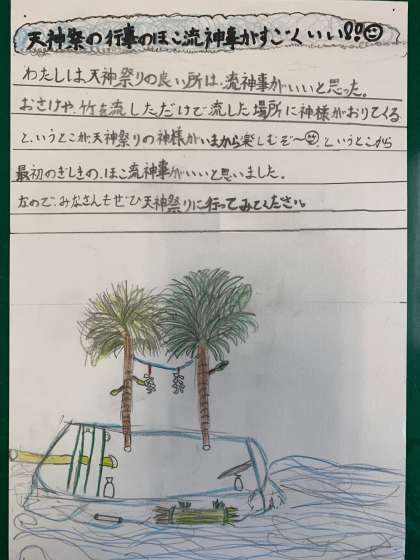 天神祭の行事のほこ流神事がすごくいい!!☺
わたしは、天神祭りの良い所は、流神事がいいと思った。
おさけや、竹を流しただけで流した場所に神様がおりてくる
と、いうとこが、天神祭りの神様がいまから楽しむぞ〜☺、というとこから
最初のぎしきの、ほこ流神事がいいと思いました。
なので、みなさんもぜひ天神祭りに行ってみてください。